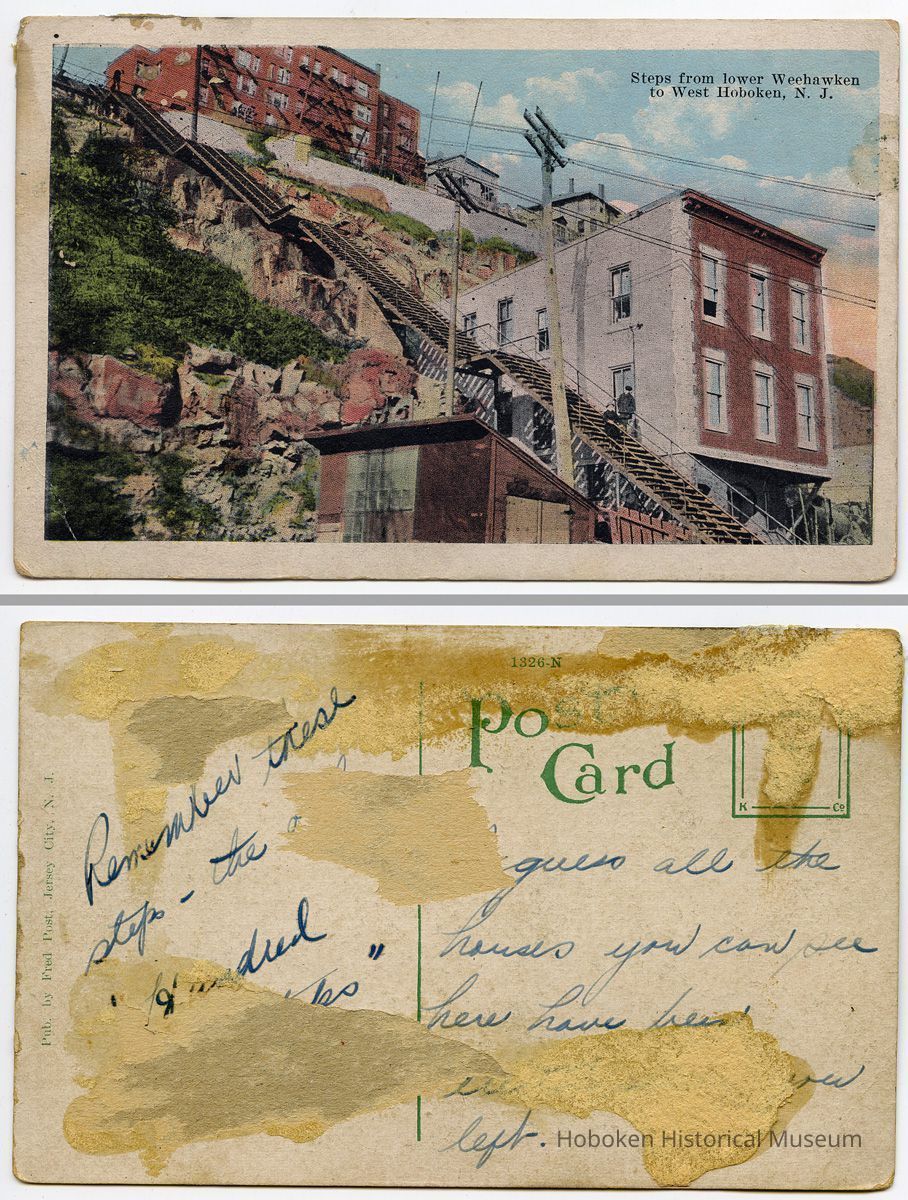 Steps from lower Weehawken
to West Hoboken, N. J.
1326-N
Post
Card
K Co
Pub. by Fred Post, Jersey City, N. J.
Remember these
steps - the
"Hundred
"
guess all the
houses you can see
here have been
left.
Hoboken Historical Museum